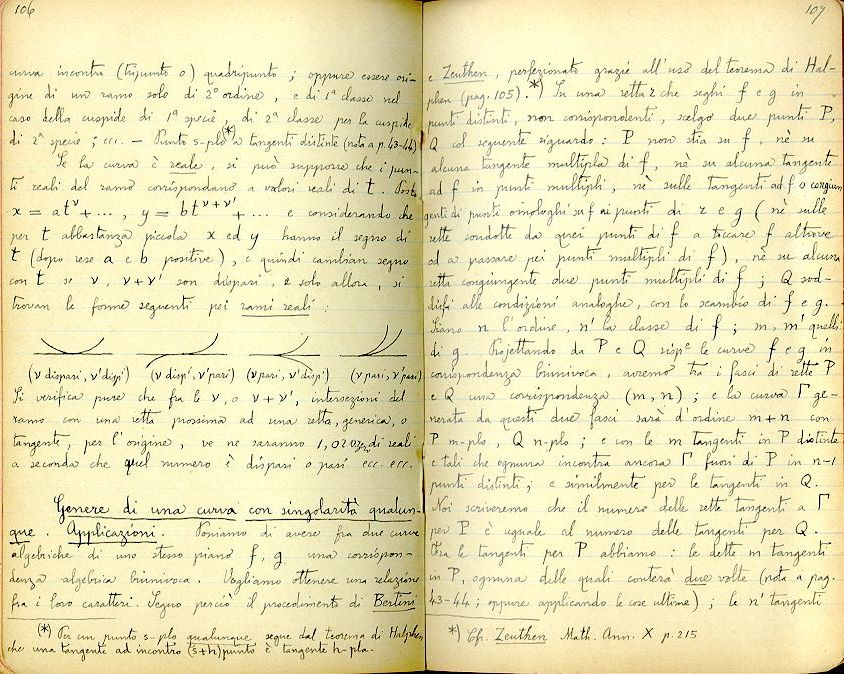 106
curva incontro (tripunto o) quadripunto ; oppure essere ori-
gine di un ramo solo di 2º ordine, e di 1ª classe nel
caso della cuspide di 1ª specie, di 2ª classe per la cuspide
di 2ª specie ; ecc. — Punto s-plo*) a tangenti distinte (nota a p. 43-44)
Se la curva è reale, si può supporre che i pun-
ti reali del ramo corrispondano a valori reali di t. Posto
x = at^ν + ... , y = bt^ν+ν' + ... e considerando che
per t abbastanza piccola x ed y hanno il segno di
t (dopo rese a e b positive), e quindi cambian segno
con t se ν, ν+ν' son dispari, e solo allora, si
trovan le forme seguenti pei rami reali :
(ν dispari, ν' disp') (ν disp', ν' pari) (ν pari, ν' disp') (ν pari, ν' pari)
Si verifica pure che fra le ν, o ν+ν', intersezioni del
ramo con una retta prossima ad una retta, generica, o
tangente, per l'origine, ve ne saranno 1, 0 2 di reali
a seconda che quel numero è dispari o pari ecc. ecc.
Genere di una curva con singolarità qualun-
que. Applicazioni. Poniamo di avere fra due curve
algebriche di uno stesso piano f, g una corrispon-
denza algebrica biunivoca. Vogliamo ottenere una relazione
fra i loro caratteri. Seguo perciò il procedimento di Bertini
(*) Per un punto s-plo qualunque segue dal teorema di Halphen
che una tangente ad incontro (s+h)punto è tangente h-pla.
107
e Zeuthen, perfezionato grazie all'uso del teorema di Hal-
phen (pag. 105).*) Su una retta r che seghi f e g in
punti distinti, non corrispondenti, scelgo due punti P,
Q col seguente riguardo : P non stia su f, nè su
alcuna tangente multipla di f, nè su alcuna tangente
ad f in punti multipli, nè sulle tangenti ad f o congiun
genti di punti omologhi su f ai punti di r e g (nè sulle
rette condotte da quei punti di f a toccare f altrove
od a passare pei punti multipli di f), nè su alcuna
retta congiungente due punti multipli di f ; Q sod-
disfi alle condizioni analoghe, con lo scambio di f e g.
Siano n l'ordine, n' la classe di f ; m, m' quelli
di g. Projettando da P e Q risp^e le curve f e g in
corrispondenza biunivoca, avremo tra i fasci di rette P
e Q una corrispondenza (m, n) ; e la curva Γ ge-
nerata da questi due fasci sarà d'ordine m+n con
P m-plo, Q n-plo ; e con le m tangenti in P distinte
e tali che ognuna incontra ancora Γ fuori di P in n-1
punti distinti ; e similmente per le tangenti in Q.
Noi scriveremo che il numero delle rette tangenti a Γ
per P è uguale al numero delle tangenti per Q.
Fra le tangenti per P abbiamo : le dette m tangenti
in P, ognuna delle quali conterà due volte (nota a pag.
43-44 ; oppure applicando le cose ultime) ; le n' tangenti
*) Cfr. Zeuthen Math. Ann. X p. 215